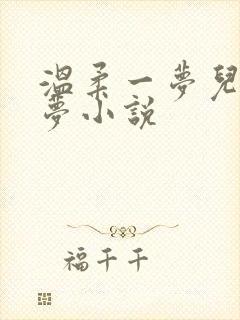 温柔一夢兒
夢小説
福千千